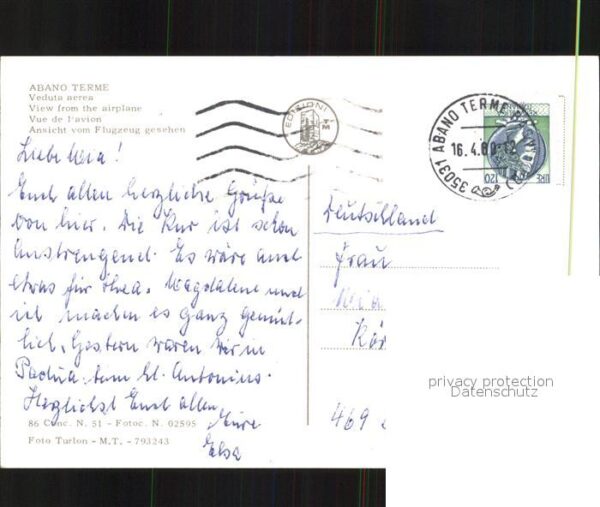 ABANO TERME
Veduta aerea
View from the airplane
Vue de l'avion
Ansicht vom Flugzeug gesehen
EDIZIONI
T M
35031 ABANO TERME
16.4.80-12
LIRE 120
Liebe Mia!
Euch allen herzliche Grüße
von hier. Die Kur ist schon
anstrengend. Es wäre auch
etwas für Thea. Magdalene und
ich machen es ganz gemüt-
lich. Gestern waren wir in
Padua, beim hl. Antonius.
Herzlichst Euch allen
Eure
Elsa
Deutschland
Frau
Kör
469
privacy protection
Datenschutz
86 Conc. N. 51 - Fotoc. N. 02595
Foto Turlon - M.T. - 793243